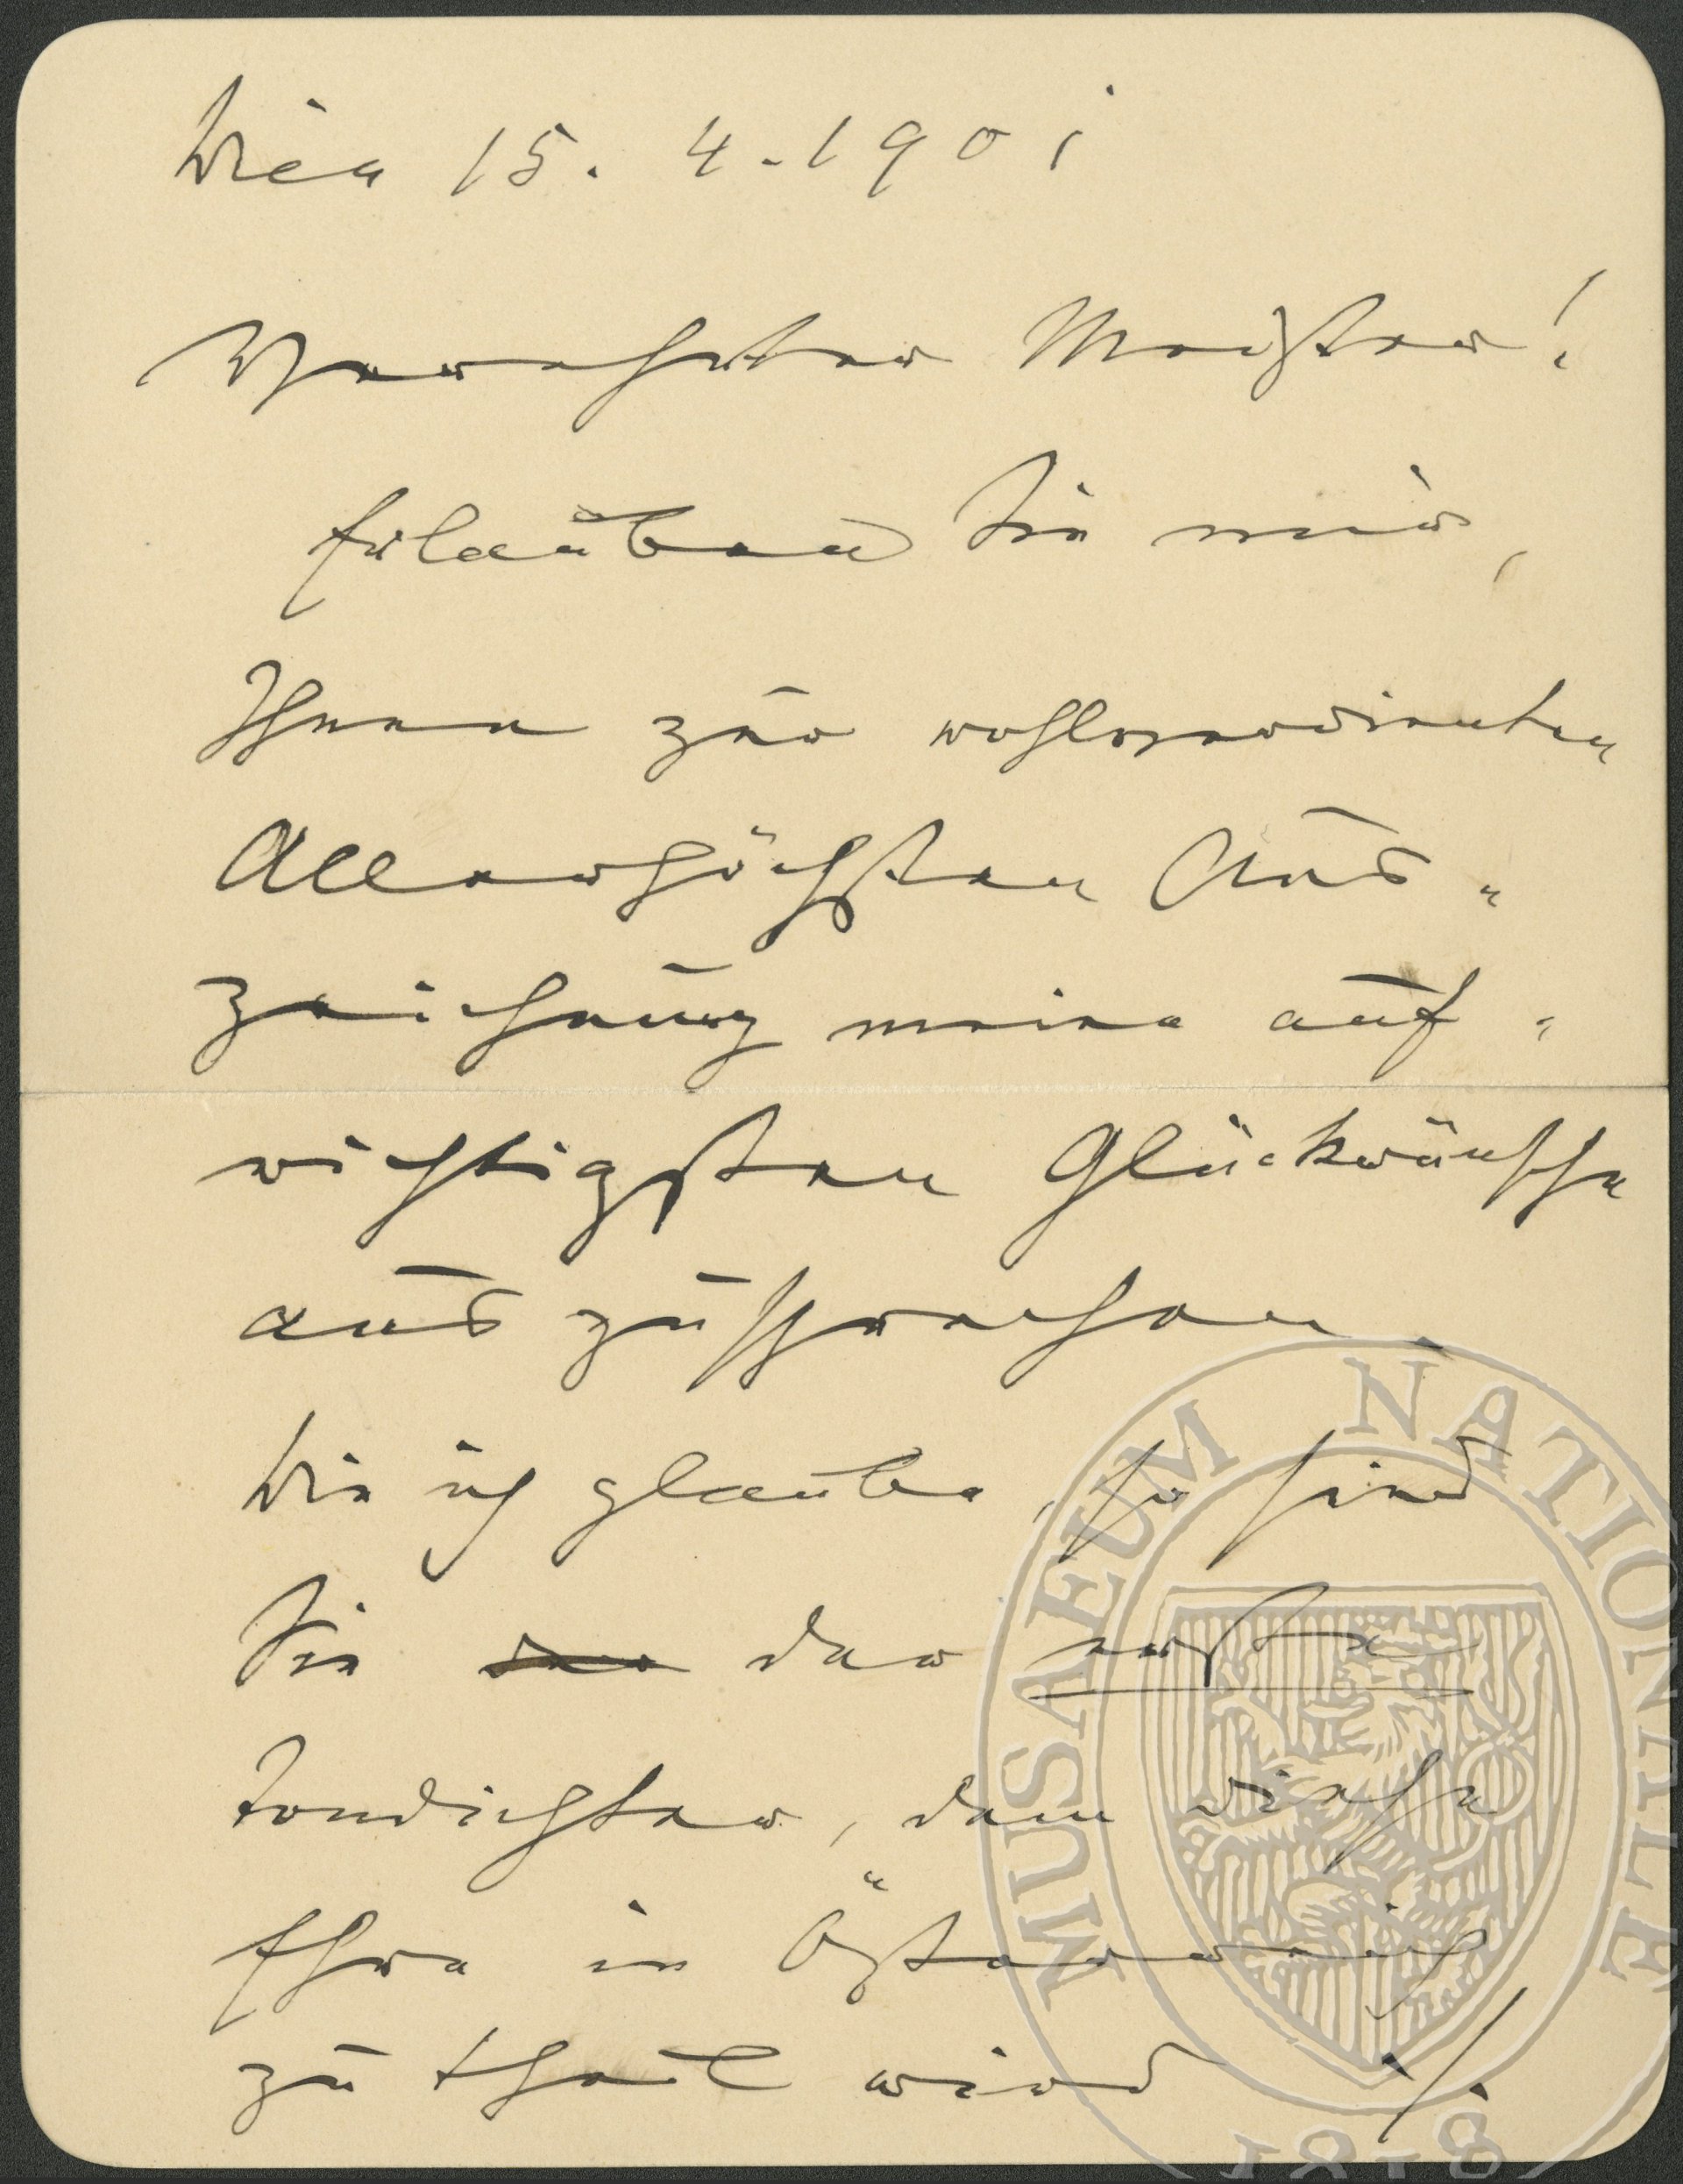 Wien 15. 4. 1901
Verehrter Meister!
Erlauben Sie mir,
Ihnen zur wohlverdienten
Allerhöchsten Aus„
zeichnung meine auf„
richtigsten Glückwünsche
auszusprechen.
Wie ich glaube, so sind
Sie der erste
Tondichter, dem diese
Ehre in Österreich
zu theil wird
MUSAEUM NATIONALE
1818